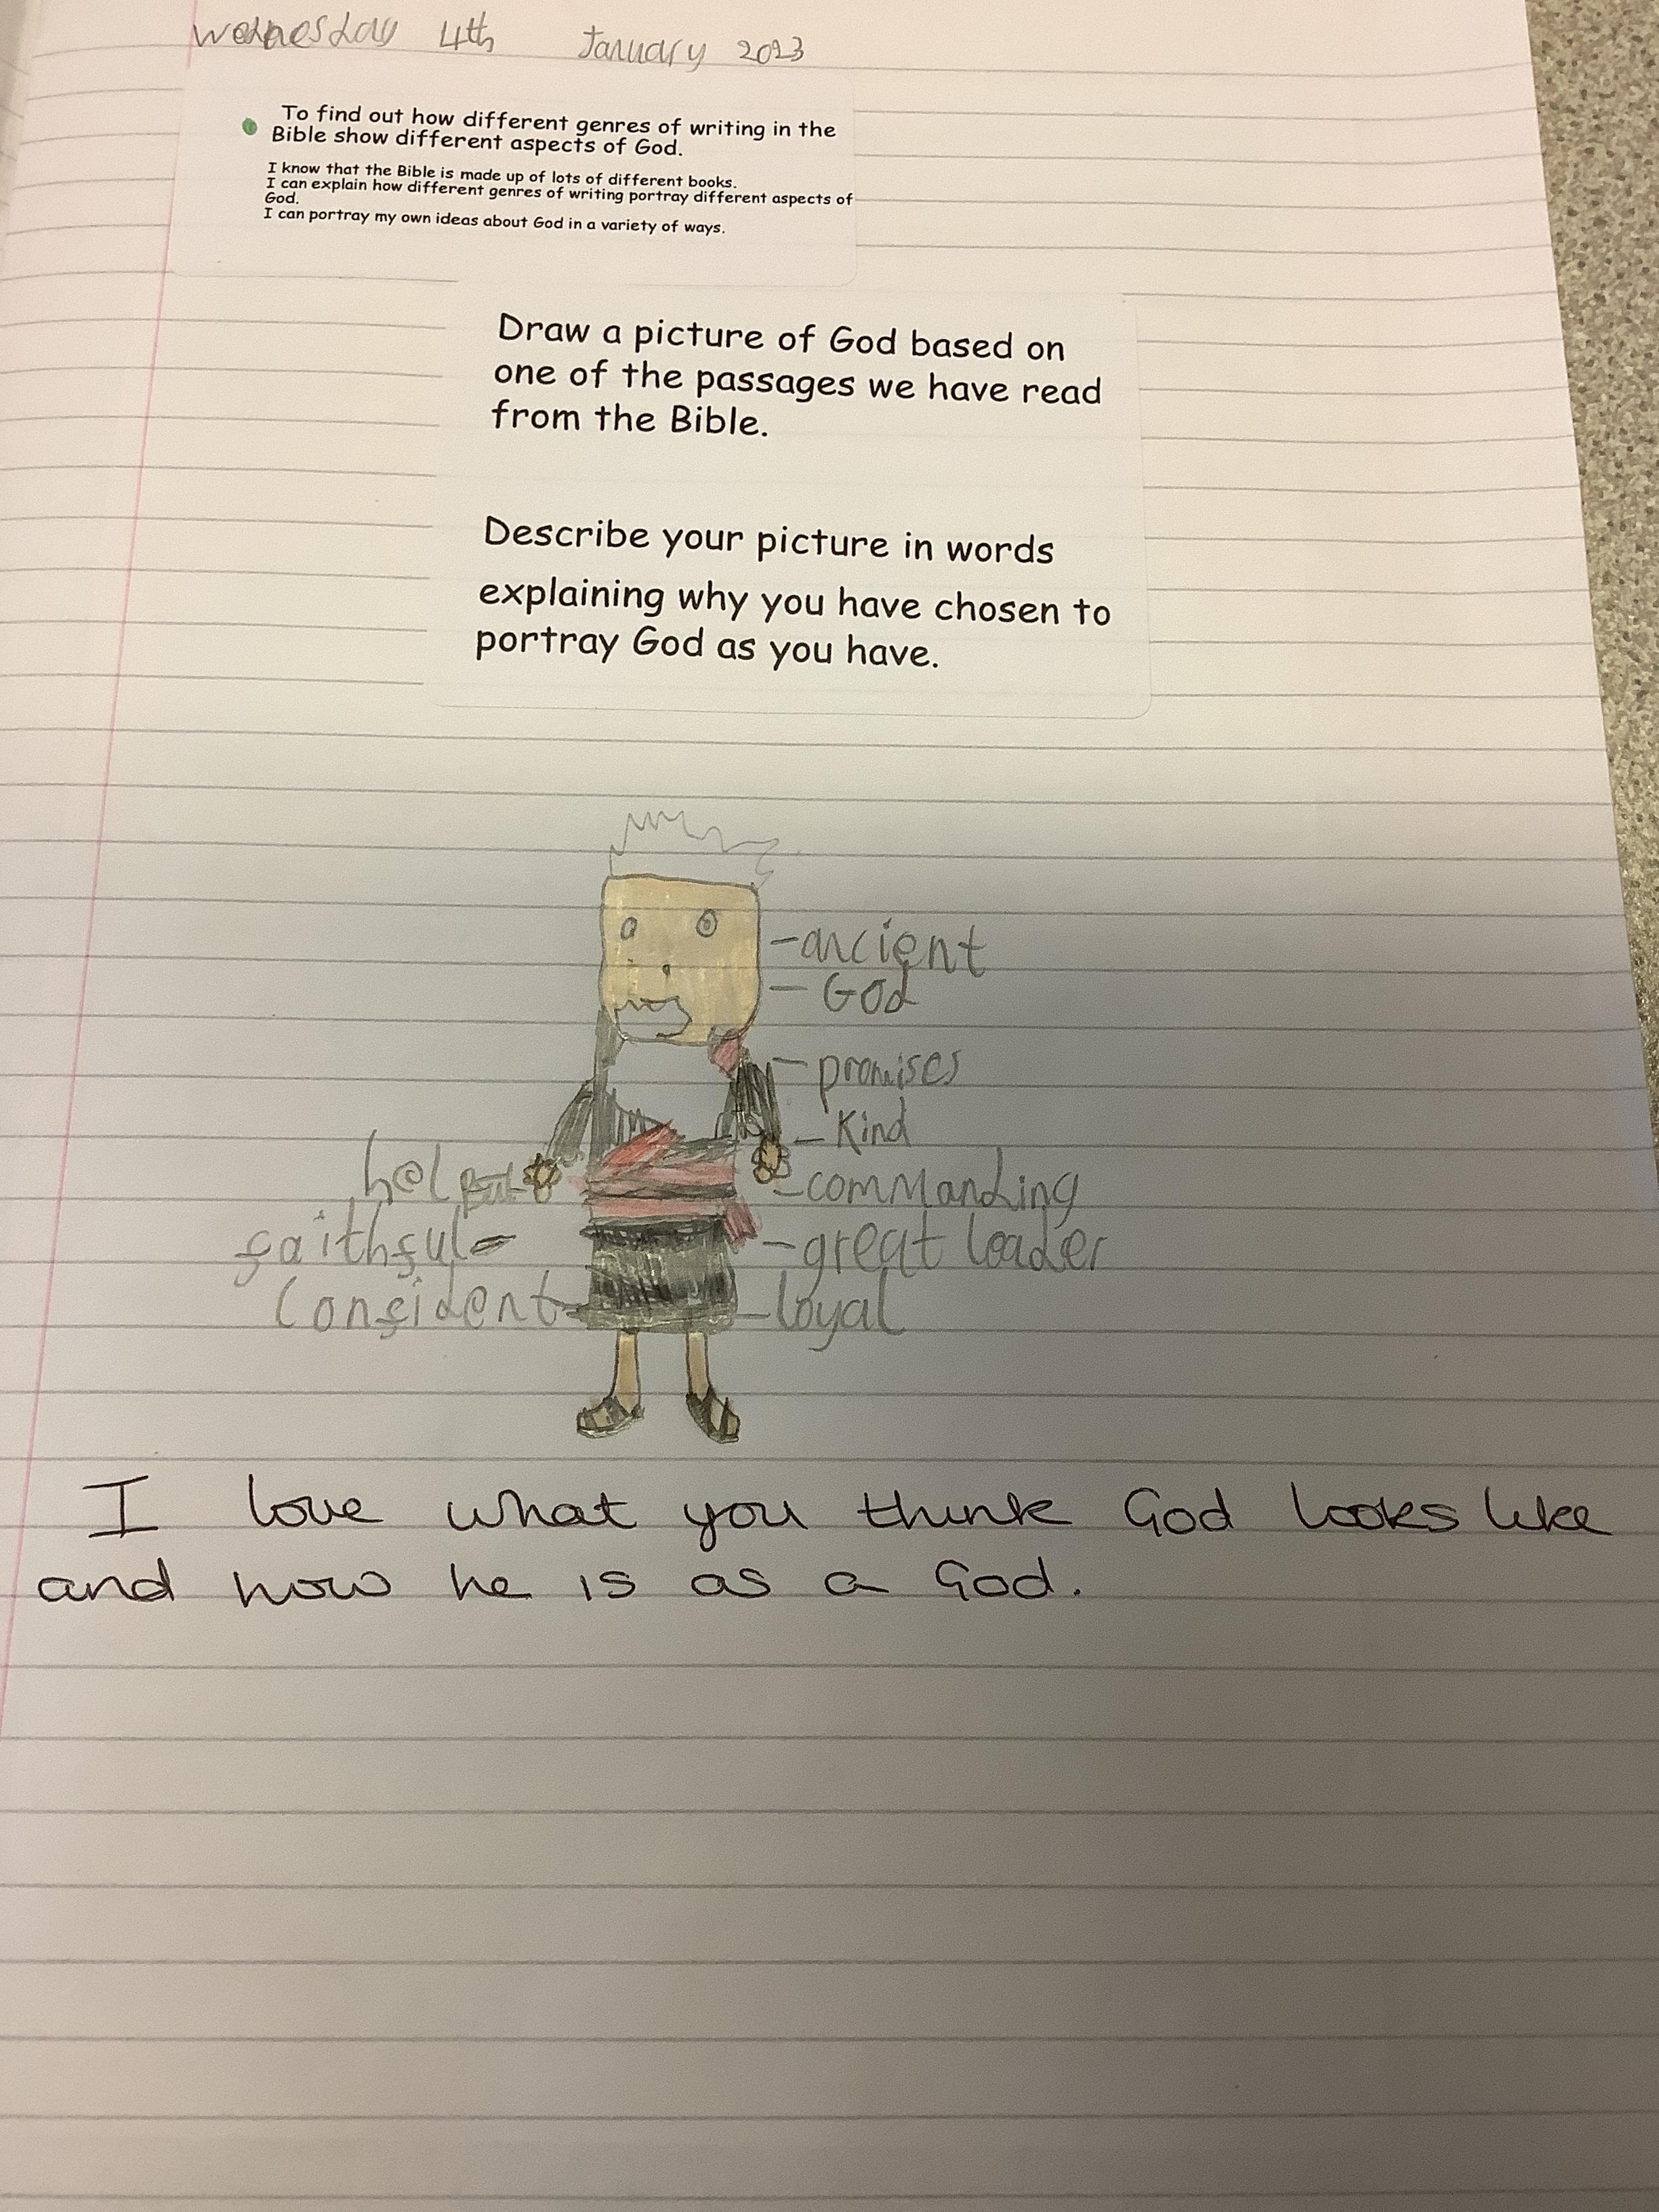 Wednesday 4th January 2023
To find out how different genres of writing in the
Bible show different aspects of God.
I know that the Bible is made up of lots of different books.
I can explain how different genres of writing portray different aspects of
God.
I can portray my own ideas about God in a variety of ways.
Draw a picture of God based on
one of the passages we have read
from the Bible.
Describe your picture in words
explaining why you have chosen to
portray God as you have.
-ancient
- God
- promises
- Kind
helpful
-commanding
faithful-
-great leader
Confident-
-loyal
I love what you think God looks like
and how he is as a God.